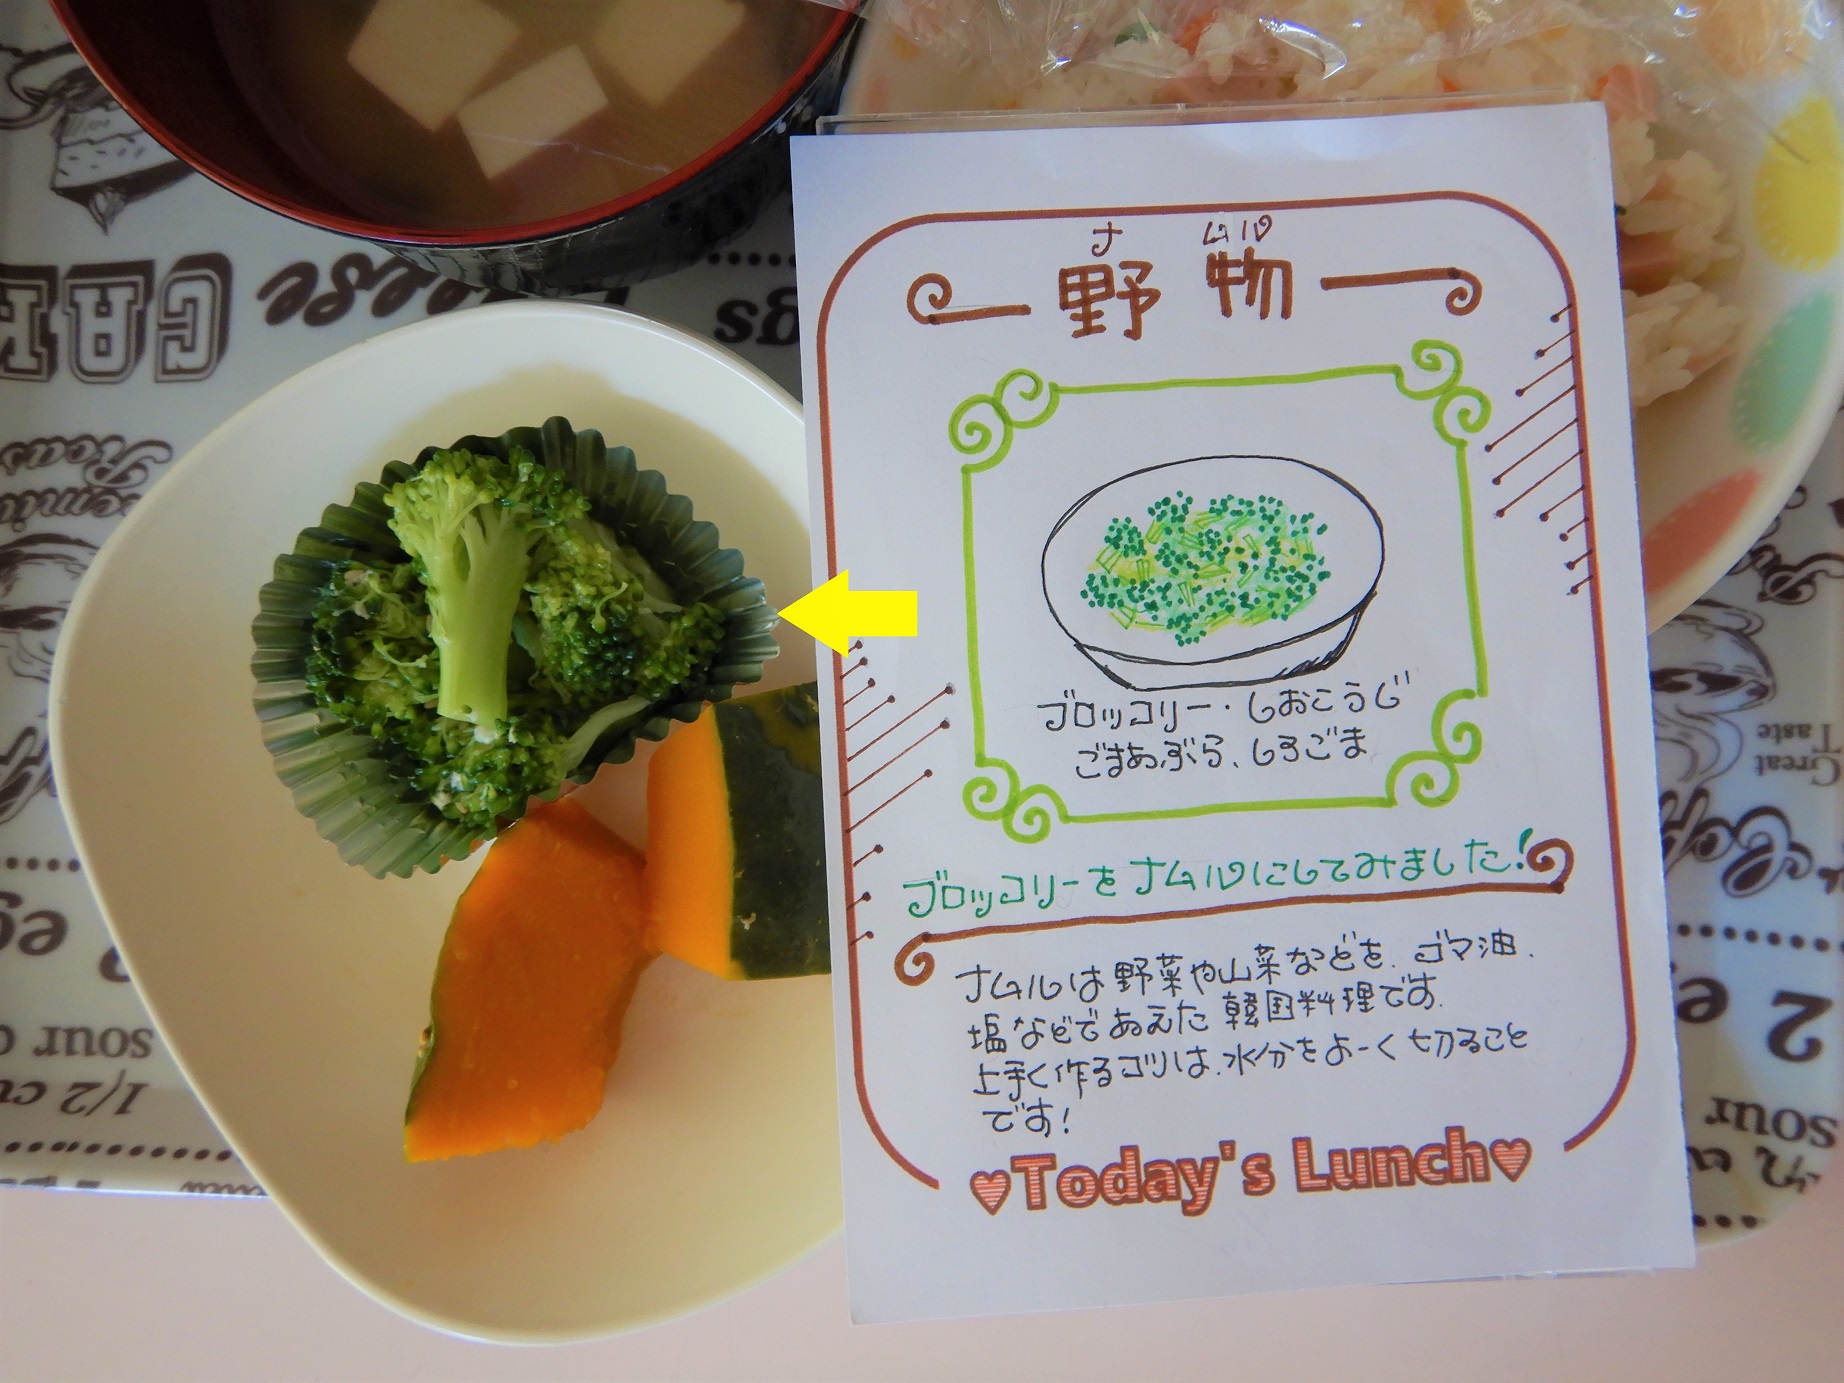 ナ ムル
野物
ブロッコリー・しおこうじ
ごまあぶら、しろごま
ブロッコリーをナムルにしてみました!
ナムルは野菜や山菜などを、ゴマ油、
塩などであえた韓国料理です。
上手く作るコツは、水分をよーく切ること
です!
♥Today's Lunch♥
Great
Taste
2 e
sour
1/2 cu
sour c
eese
CAK
gs
egg